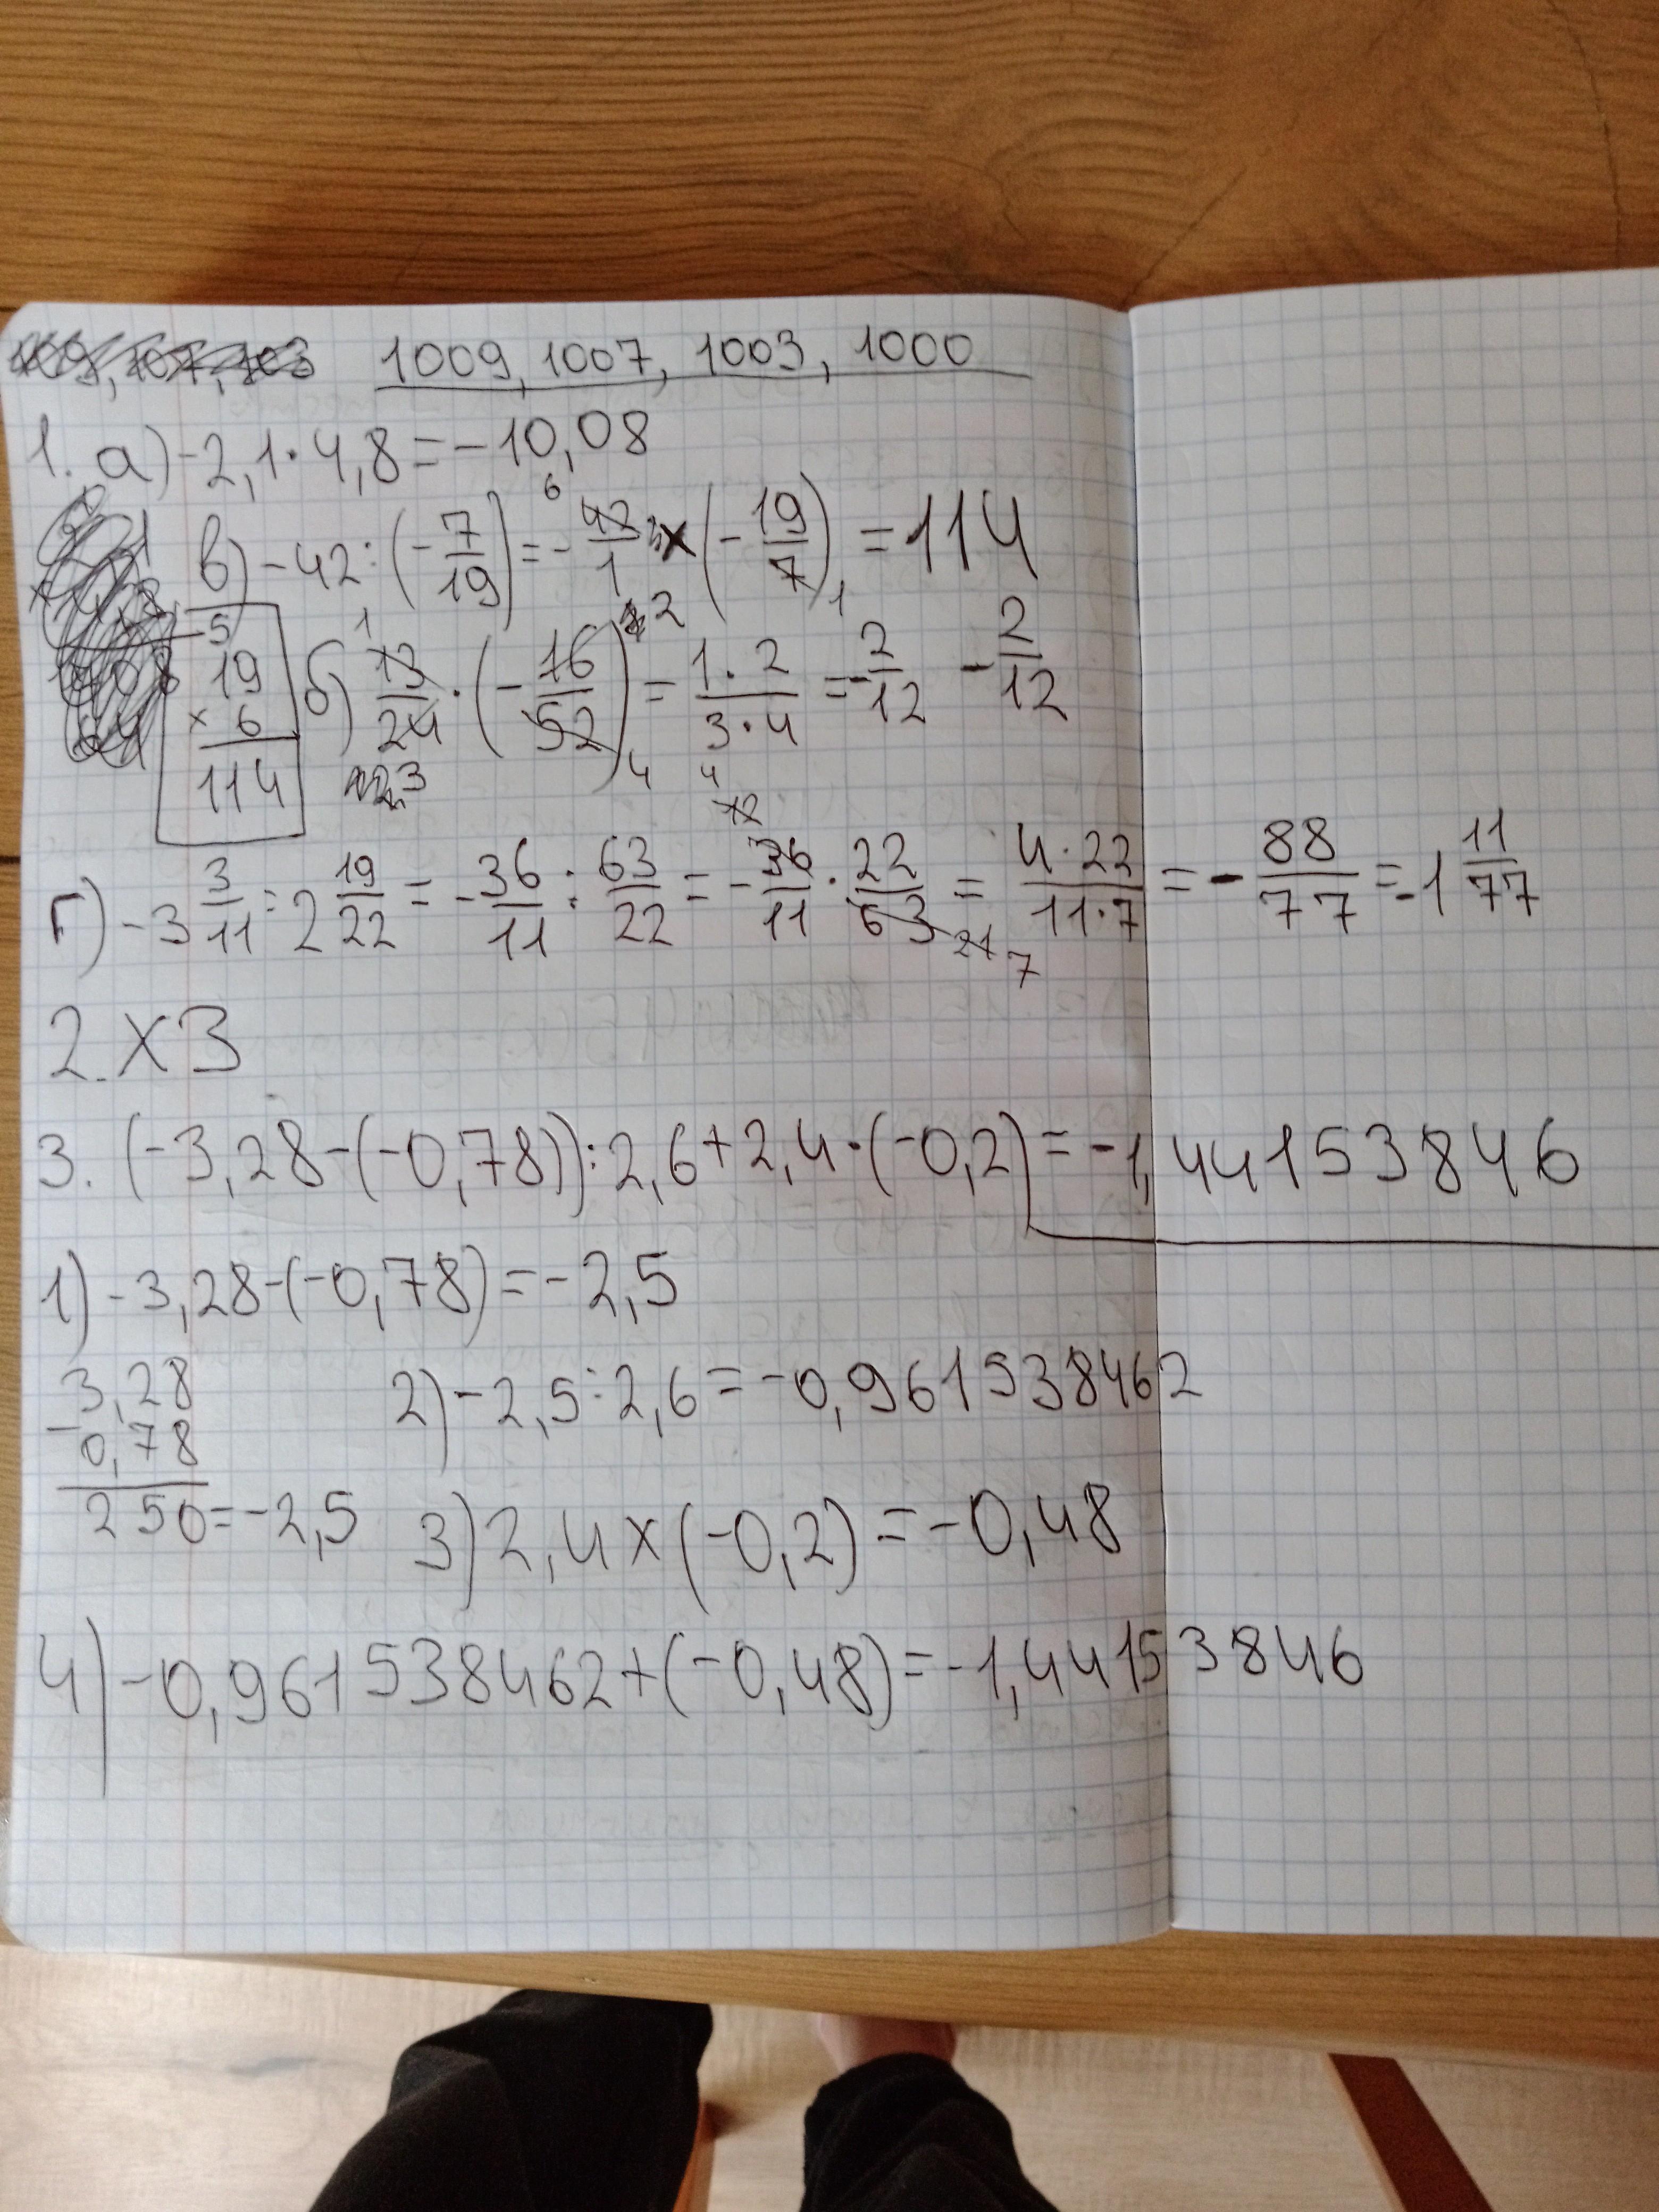 1009, 1007, 1003, 1000
1. а) -2,1·4,8=-10,08
в) -42:(-7/19)=-42/1 x (-19/7)=114
6
1
5
19
x 6
114
б) 13/24·(-16/52)=1·2/3·4=-2/12 -2/12
1
2
3
4
г) -3 3/11:2 19/22=-36/11:63/22=-36/11·22/63=4·22/11·7=-88/77=-1 11/77
4
12
21
7
2. x3
3. (-3,28-(-0,78)):2,6+2,4·(-0,2)=-1,44153846
1) -3,28-(-0,78)=-2,5
-3,28
0,78
250=-2,5
2) -2,5:2,6=-0,961538462
3) 2,4x(-0,2)=-0,48
4) -0,961538462+(-0,48)=-1,44153846